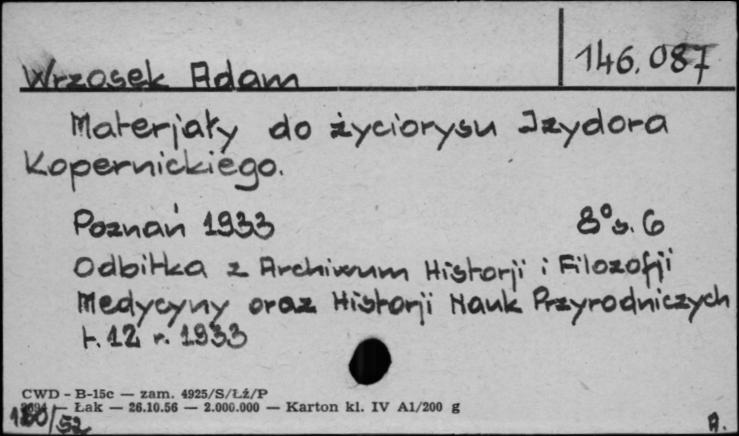 Wrzosek Adam
146.087
Materjały do życiorysu Izydora
Kopernickiego.
Poznań 1933 8° s. 6
Odbitka z Archiwum Historji i Filozofji
Medycyny oraz Historji Nauk Przyrodniczych
t. 12 r. 1933
CWD - B-15c — zam. 4925/S/Łż/P
— Łak — 26.10.56 — 2.000.000 — Karton kl. IV A1/200 g
/52
A.